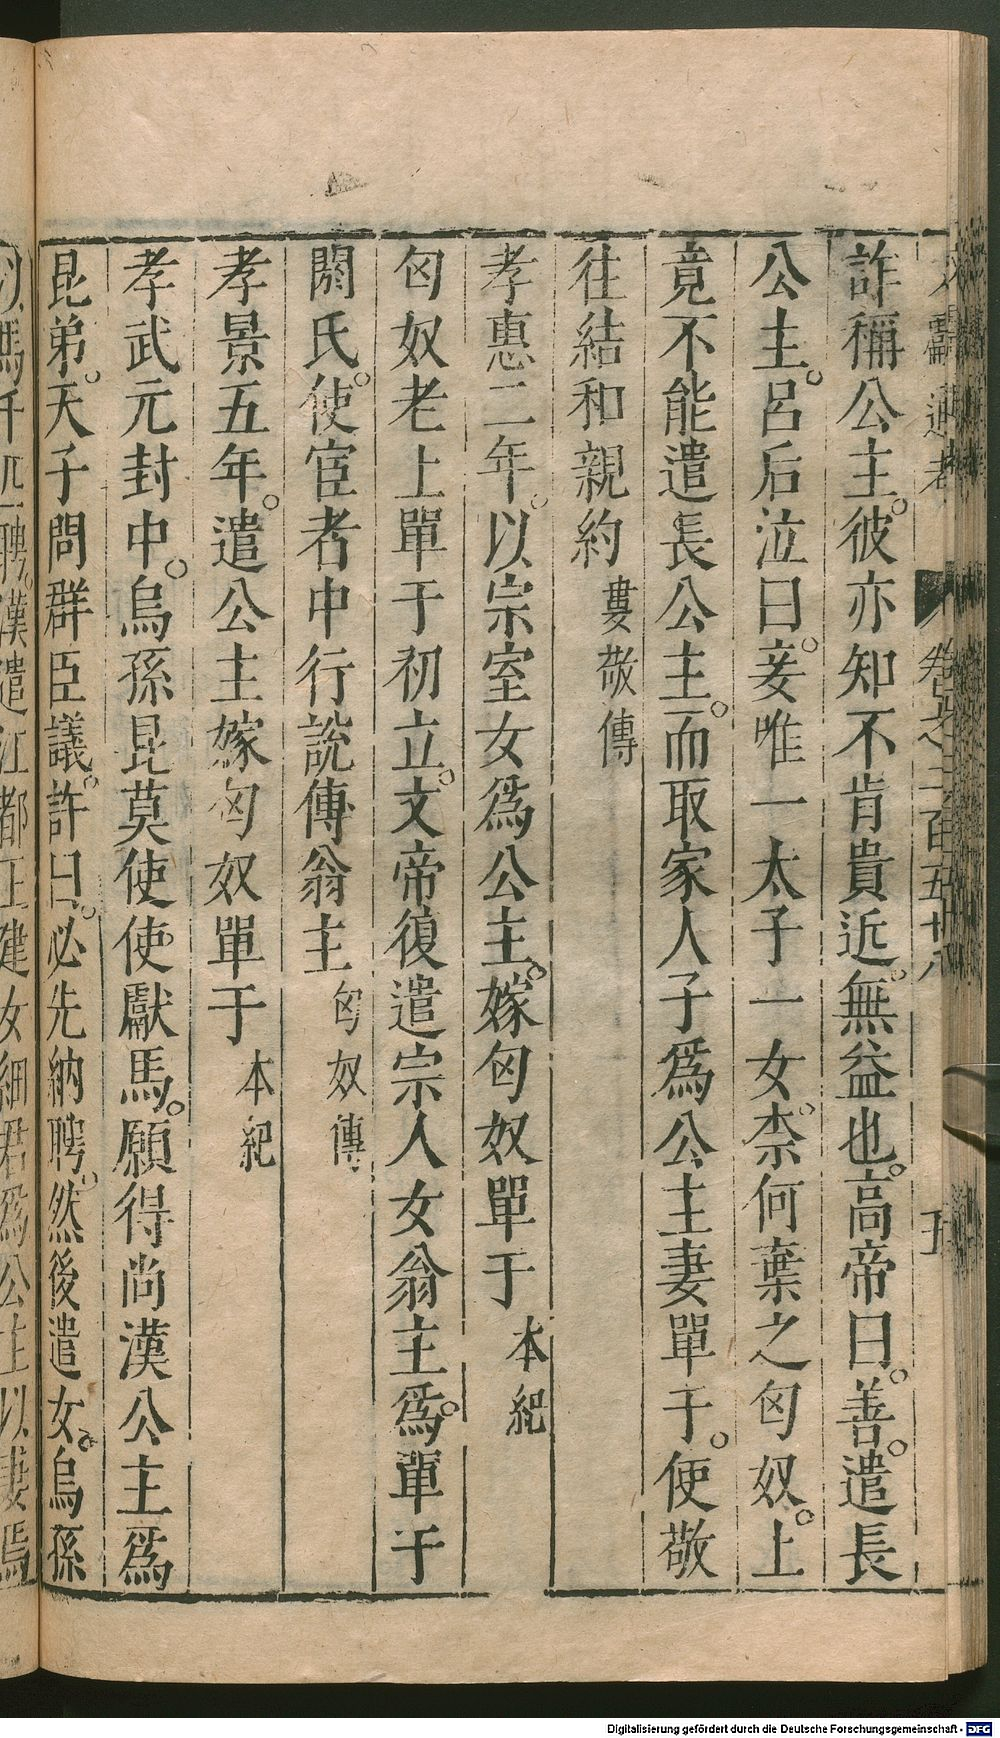 卷之二百五十八
五
詐稱公主。彼亦知不肯貴近。無益也。高帝曰。善。遣長
公主。呂后泣曰。妾唯一太子一女。柰何葉之匈奴。上
竟不能遣長公主。而取家人子爲公主妻單于。使敬
徃結和親約 婁敬傳
孝惠二年。以宗室女爲公主。嫁匈奴單于 本紀
匈奴老上單于初立。文帝復遣宗人女翁主爲。單于
閼氏。使宦者中行說傳翁主 匈奴傳
孝景五年。遣公主嫁匈奴單于 本紀
孝武元封中。烏孫昆莫使使獻馬。願得尚漢公主爲
昆弟。天子問群臣議。許曰。必先納聘。然後遣女。烏孫
以馬千匹聘。漢遣江都王建女細君爲公主以妻焉
Digitalisierung gefördert durch die Deutsche Forschungsgemeinschaft - DFG